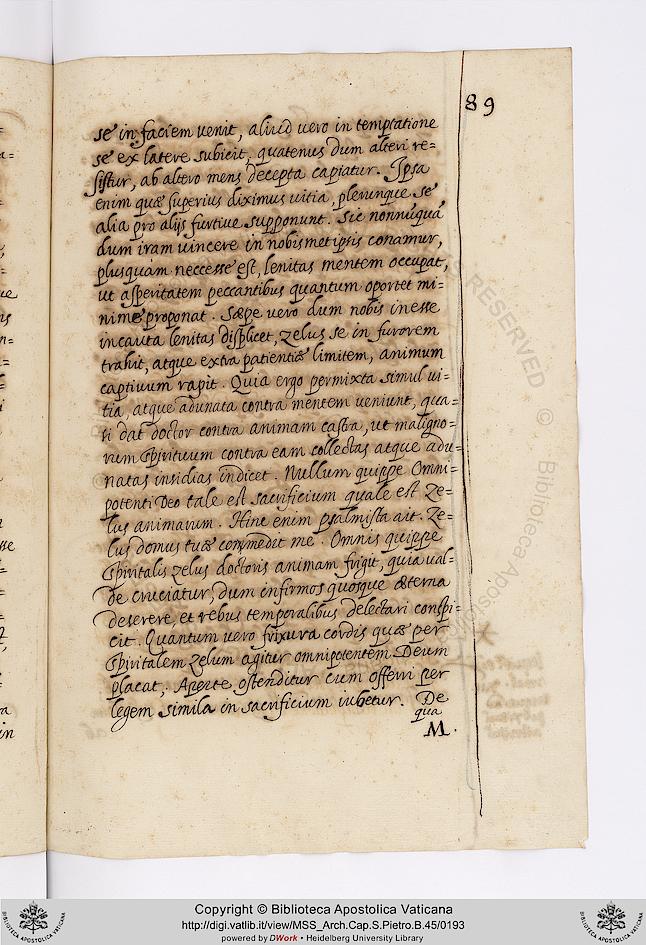 89
se in faciem venit, aliud vero in temptatione
se ex latere subicit, quatenus dum alteri re-
sistur, ab altero mens decepta capiatur. Ipsa
enim quæ superius diximus vitia, plerunque se
alia pro alijs furtive supponunt. Sic nonnũquã
dum iram vincere in nobismetipsis conamur,
plusquàm neccesse est, lenitas mentem occupat,
ut asperitatem peccantibus quantum oportet mi=
nime proponat. Sæpe vero dum nobis inesse
incauta lenitas displicet, zelus se in furorem
trahit, atque extra patientiæ limitem, animum
captivum rapit. Quia ergo permixta simul vi-
tia, atque adunata contra mentem veniunt, qua=
si dat doctor contra animam castra, ut maligno-
rum spirituum contra eam collectas atque adu=
natas insidias indicet. Nullum quippe Omni-
potenti Deo tale est sacrificium quale est ze-
lus animarum. Hinc enim psalmista ait. Ze=
lus domus tuæ commedit me. Omnis quippe
spiritalis zelus doctoris animam frigit, quia val-
de cruciatur, dum infirmos quosque æterna
deserere, et rebus temporalibus delectari conspi-
cit. Quantum vero frixura cordis quæ per
spiritalem zelum agitur omnipotentem Deum
placat, Aperte ostenditur cum offerri per
legem simila in sacrificium iubetur. De
qua
M.
Copyright © Biblioteca Apostolica Vaticana
http://digi.vatlib.it/view/MSS_Arch.Cap.S.Pietro.B.45/0193
powered by DWork • Heidelberg University Library